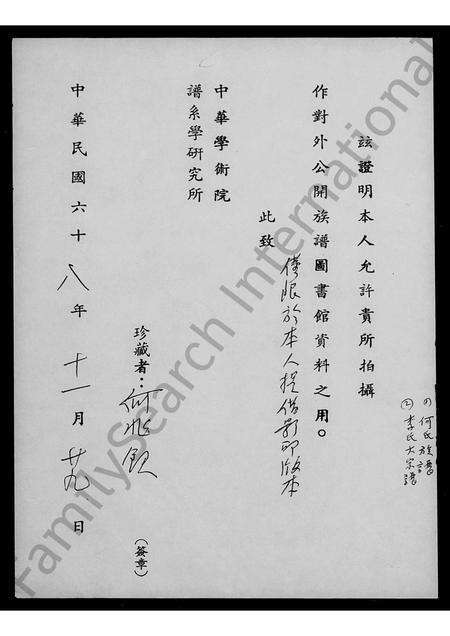 茲證明本人允許貴所拍攝
作對外公開族譜圖書館資料之用。
僅限於本人提借影印版本
此致
中華學術院
譜系學研究所
珍藏者：何兆欽
(簽章)
中華民國六十八年十一月廿九日
(1)何氏族譜
②李氏大宗譜
FamilySearch International